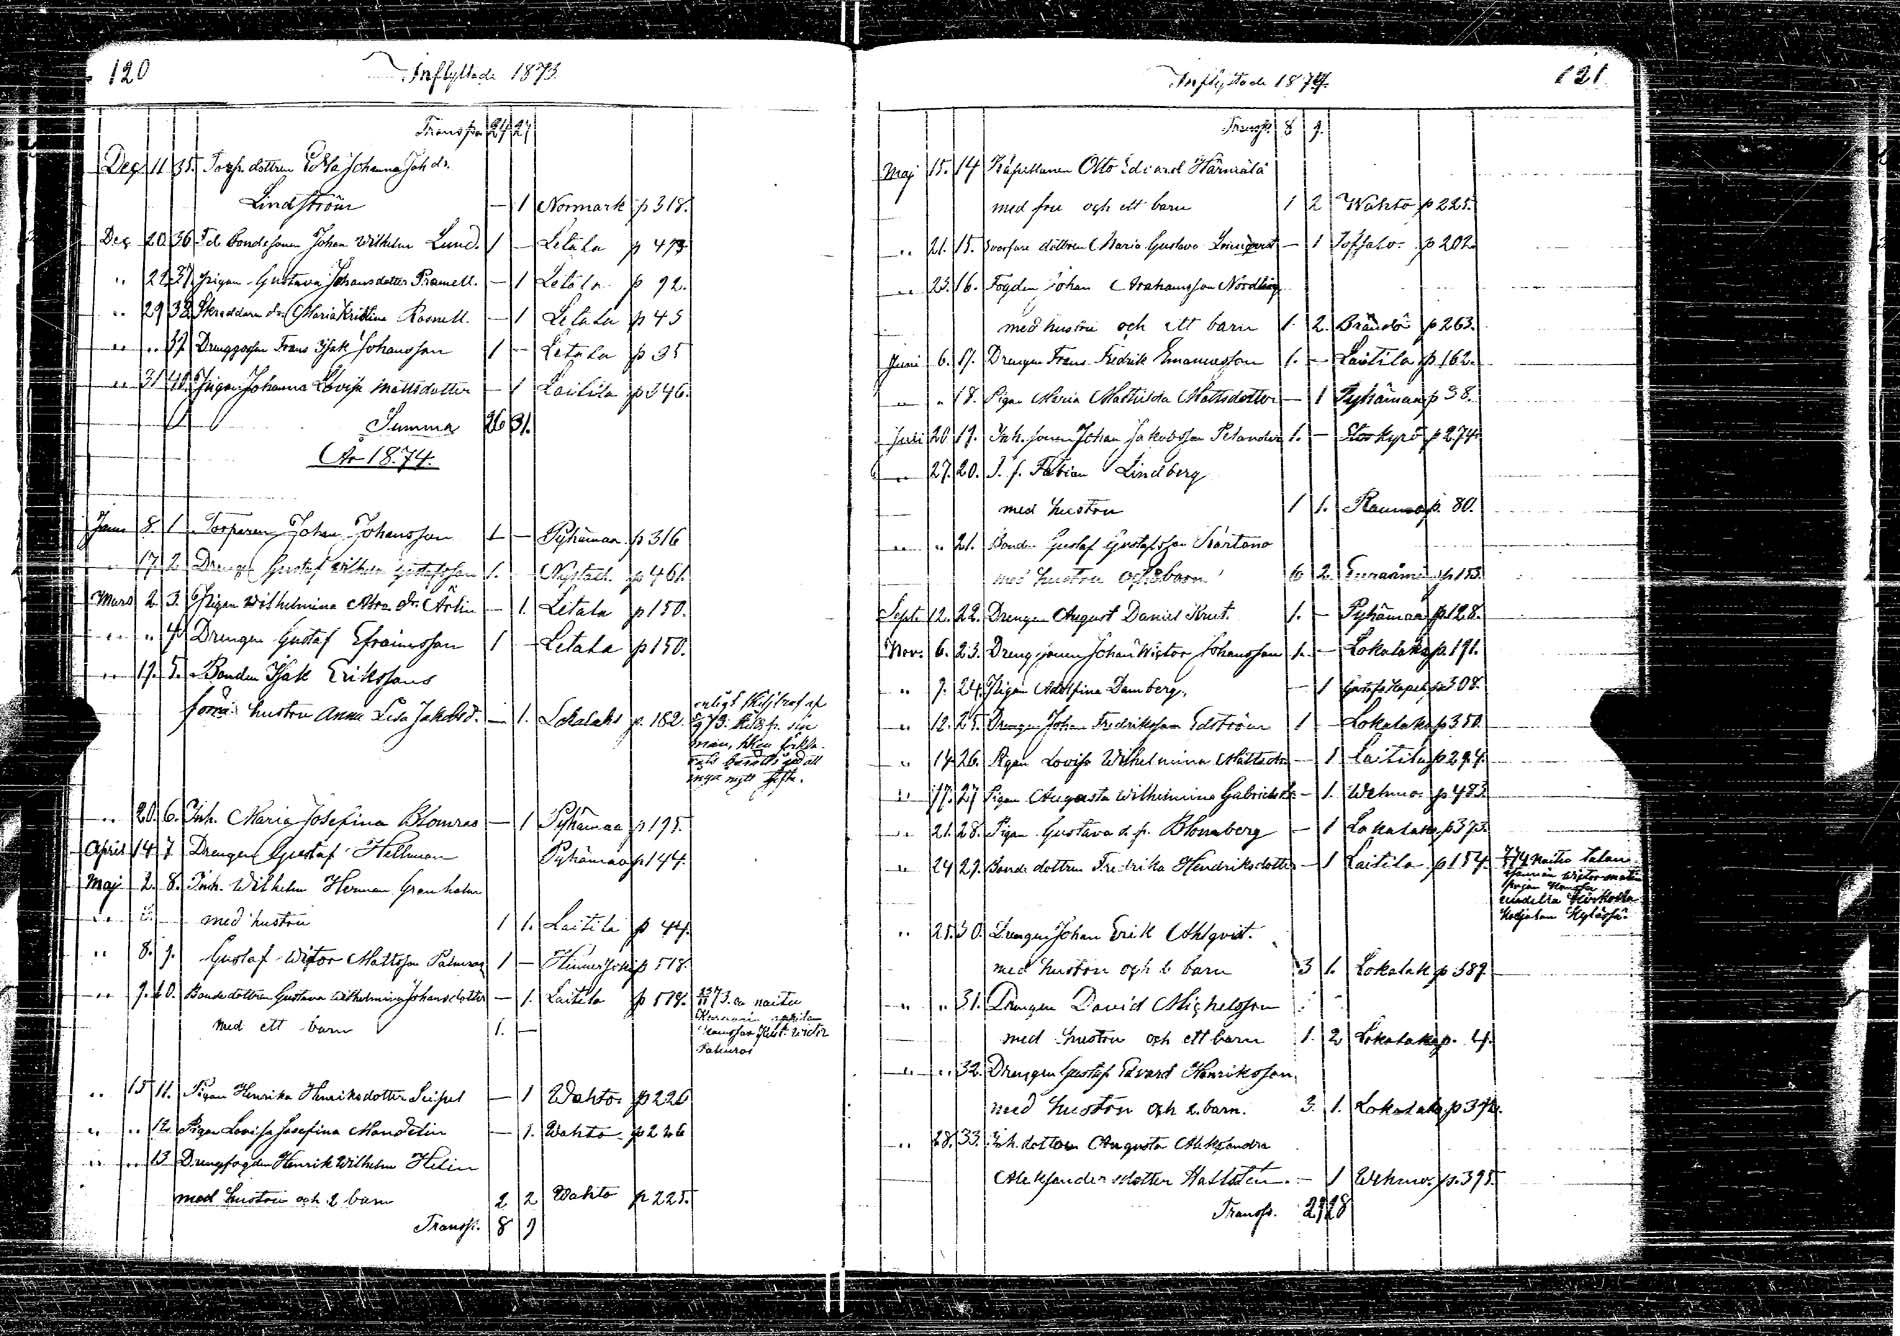 120
Inflyttade 1873.
Transp. 24 27
Dec 11 35. Torp. dottren Johanna Joh dr.
Lindström — 1 Normark p 318.
Dec 20. 36. F d. Bondesonen Johan Wilhelm Lund. 1 — Letala p 473
" 22 37. Pigan Gustava Johansdotter Pramell. — 1 Letala p 92.
" 29 38. Skreddare dr. Maria Kristina Rosnell. — 1 Letala p 45
" " 39. Drenggossen Frans Isak Johansson 1 — Letala p 35
" 31 40. Pigan Johanna Lovisa Mattsdotter — 1 Laitila p 346.
Summa 26 31.
År 1874.
Janu 8. 1 Torparen Johan Johansson 1 — Pyhämaa p 316
" 17. 2 Drengen Gustaf Wilhelm Gustafsson 1. — Nystad. p 461.
Mars 2. 3. Pigan Wilhelmina Abra dr. — 1. Letala p 150.
" " 4. Drengen Gustaf Efraimsson 1 — Letala p 150.
" 19. 5. Bonden Isak Erikssons
förra hustru Anna Lisa Jakobsd. — 1. Lokalaks p. 182.
enligt
inga nytt gifte.
" 20. 6. Inh. Maria Josefina Blomros — 1 Pyhämaa p 195.
April 14 7 Drengen Gustaf Hellman Pyhämaa p 144.
Maj 2. 8. Inh. Wilhelm Herman Granholm
med hustru 1 1. Laitila p 44.
" 8. 9. Gustaf Wiktor Mattsson Palmros 1 — Hinnerjoki p 518.
" 9. 10. Bondedottren Gustava Wilhelmina Johansdotter — 1. Laitila p 519.
med ett barn 1. —
73. naitu
Palmros
" 15 11. Pigan Henrika Henriksdotter Seipel — 1 Wahto p 226
" " 12. Pigan Lovisa Josefina Mandelin — 1. Wahto p 226
" " 13 Drengfogden Henrik Wilhelm Helin
med hustru och 2 barn 2 2 Wahto p 225.
Transp. 8 9
Inflyttade 1874.
121.
Transp. 8 9.
Maj 15. 14 Kapellanen Otto Edvard Härmälä
med fru och ett barn 1 2 Wahto p 225.
" 21. 15. dottren Maria Gustava — 1 p 202.
" 23. 16. Fogden Johan Abrahamsson Nordberg
med hustru och ett barn 1. 2. Brändö p 263.
Juni 6. 17. Drengen Frans Fredrik Emanuelsson 1. — Laitila p 162.
" " 18. Pigan Maria Mathilda Mattsdotter — 1 Pyhämaa p 38.
Juli 20 19. Inh. sonen Johan Jakobsson Pelander 1. — Storkyrö p 274.
" 27. 20. I. f. Fabian Lindberg
med hustru 1 1. Raumo p. 80.
" " 21. Bonden Gustaf Gustafsson Kartano
med hustru och barn 6 2. Euraåminne p 153.
Sept. 12. 22. Drengen August Daniel Knut. 1. — Pyhämaa p 128.
Nov. 6. 23. Drengsonen Johan Wiktor Johansson 1. — Lokalaks p. 191.
" 9. 24. Pigan Adolfina Damberg. — 1 Gustafs Kapell p 308.
" 12. 25. Drengen Johan Fredriksson Edström 1 — Lokalaks p 350.
" 14. 26. Pigan Lovisa Wilhelmina Mattsdr. — 1 Laitila p 294.
" 17. 27 Pigan Augusta Wilhelmina Gabrielsdr. — 1. Wehmo. p 483.
" 21. 28. Pigan Gustava Blomberg — 1 Lokalaks p 373.
" 24 29. Bonde dottren Fredrika Hendriksdotter — 1 Laitila p 154.
naitu talon
" 25. 30. Drengen Johan Erik Ahlqvist.
med hustru och 2 barn 3 1. Lokalaks p 389
" " 31. Drengen David Michelsson
med hustru och ett barn 1. 2 Lokalaks p. 4.
" " 32. Drengen Gustaf Edvard Henriksson
med hustru och 2. barn. 3. 1. Lokalaks p 372.
" 28. 33. Inh. dottren Augusta Aleksandra
Aleksandersdotter Hallstén. — 1 Wehmo. p. 395.
Transp. 29 28